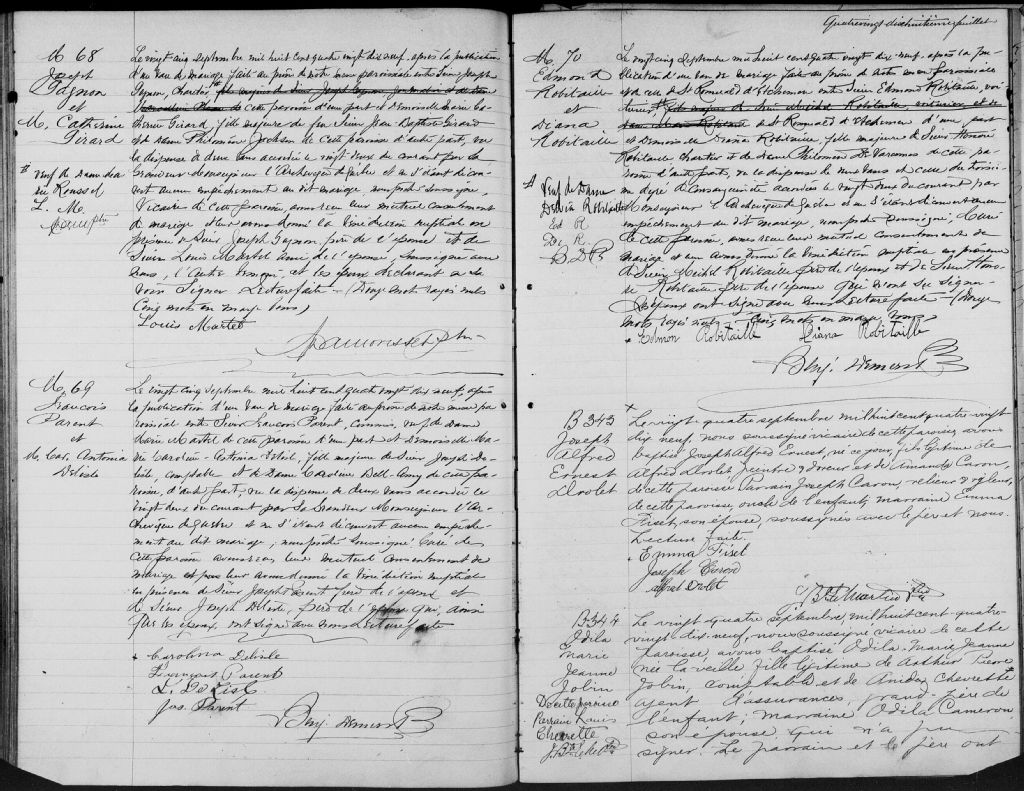 M 68
Joseph
Gagnon
et
M. Catherine
Girard
veuf de Dame
Roussel
L. M.
ptre
Le vingt cinq Septembre mil huit cent quatre vingt dix neuf, après la publication
d'un ban de mariage fait au prône de notre messe paroissiale entre Sieur Joseph
Gagnon, Charretier
de cette paroisse d'une part et Demoiselle Marie Ca-
therine Girard, fille majeure de feu Sieur Jean Baptiste Girard
et de Dame Philomène Jackson de cette paroisse d'autre part, vu
la dispense de deux bans accordée le vingt deux du courant par Sa
Grandeur Monseigneur l'Archevêque de Québec et ne s'étant dé-
couvert aucun empêchement au dit mariage, nous prêtre soussigné
Vicaire de cette paroisse, avons reçu leur mutuel consentement
de mariage et leur avons donné la bénédiction nuptiale en
présence de Sieur Joseph Gagnon, père de l'époux et de
Sieur Louis Martel ami de l'épouse, soussigné avec
nous, l'autre témoin, et les époux déclarant ne sa-
voir signer. Lecture faite - (Douze mots rayés nuls
Cinq mots en marge bons)
Louis Martel
ptre
M. 69
François
Parent
et
M. Car. Antonia
Delisle
Le vingt cinq Septembre mil huit cent quatre vingt dix neuf, après
la publication d'un ban de mariage faite au prône de notre messe pa-
roissiale entre Sieur François Parent, Commis, veuf de Dame
Marie Martel de cette paroisse d'une part et Demoiselle Ma-
rie Caroline Antonia Delisle, fille majeure de Sieur Joseph De-
lisle, comptable et de Dame Caroline de cette pa-
roisse, d'autre part, vu la dispense de deux bans accordée le
vingt deux du courant par Sa Grandeur Monseigneur l'Ar-
chevêque de Québec et ne s'étant découvert aucun empêche-
ment au dit mariage, nous prêtre soussigné Curé de
cette paroisse avons reçu leur mutuel consentement de
mariage et leur avons donné la bénédiction nuptiale
en présence de Sieur Joseph Parent père de l'époux et
de Sieur Joseph Delisle, père de l'épouse qui, ainsi
que les époux, ont signé avec nous Lecture faite
Carolina Delisle
François Parent
J. Delisle
Jos. Parent
Benj. Demers Ptre
Quatrevingt dixhuitième feuillet
M. 70
Edmond
Robitaille
et
Diana
Robitaille
Veuf de Dame
Robitaille
Ed R
D. R.
B D Ptre
Le vingt cinq Septembre mil huit cent quatre vingt dix neuf, après la pu-
blication d'un ban de mariage fait au prône de notre messe paroissiale
et à celui de St Romuald d'Etchemin entre Sieur Edmond Robitaille, voi-
turier,
de St Romuald d'Etchemin d'une part
et Demoiselle Diana Robitaille, fille majeure de Sieur Honoré
Robitaille Charretier et de Dame Philomène de Varennes de cette pa-
roisse d'autre part, vu la dispense de deux bans et celle du troisiè-
me degré de Consanguinité accordées le vingt deux du courant par
Monseigneur l'Archevêque de Québec et ne s'étant découvert aucun
empêchement au dit mariage, nous prêtre soussigné, Curé
de cette paroisse, avons reçu leur mutuel consentement de
mariage et leur avons donné la bénédiction nuptiale en présence
de Sieur Michel Robitaille père de l'époux et de Sieur Hono-
ré Robitaille père de l'épouse qui n'ont su signer.
Les époux ont signé avec nous Lecture faite - (douze
mots rayés nuls. Cinq mots en marge bons)
Edmon Robitaille Diana Robitaille
Benj. Demers Ptre
B 343
Joseph
Alfred
Ernest
Drolet
Le vingt quatre septembre mil huit cent quatre vingt
dix neuf, nous soussigné vicaire de cette paroisse, avons
baptisé Joseph Alfred Ernest, né ce jour, fils légitime de
Alfred Drolet, peintre & doreur et de Amanda Caron,
de cette paroisse Parrain Joseph Caron, relieur & régleur,
de cette paroisse, oncle de l'enfant, marraine Emma
Fiset, son épouse, soussignés avec le père et nous.
Lecture faite.
Emma Fiset
Joseph Caron
Alfred Drolet
Ptre
B 344
Odila
Marie
Jeanne
Jobin
De cette paroisse
Parrain Louis
Chevrette
Ptre
Le vingt quatre septembre mil huit cent quatre-
vingt dix-neuf, nous soussigné vicaire de cette
paroisse, avons baptisé Odila-Marie Jeanne
née la veille fille légitime de Arthur Pierre
Jobin, comptable et de Chevrette
agent d'assurances, grand-père de
l'enfant; marraine Odila Cameron
son épouse qui n'a pu
signer. Le parrain et le père ont